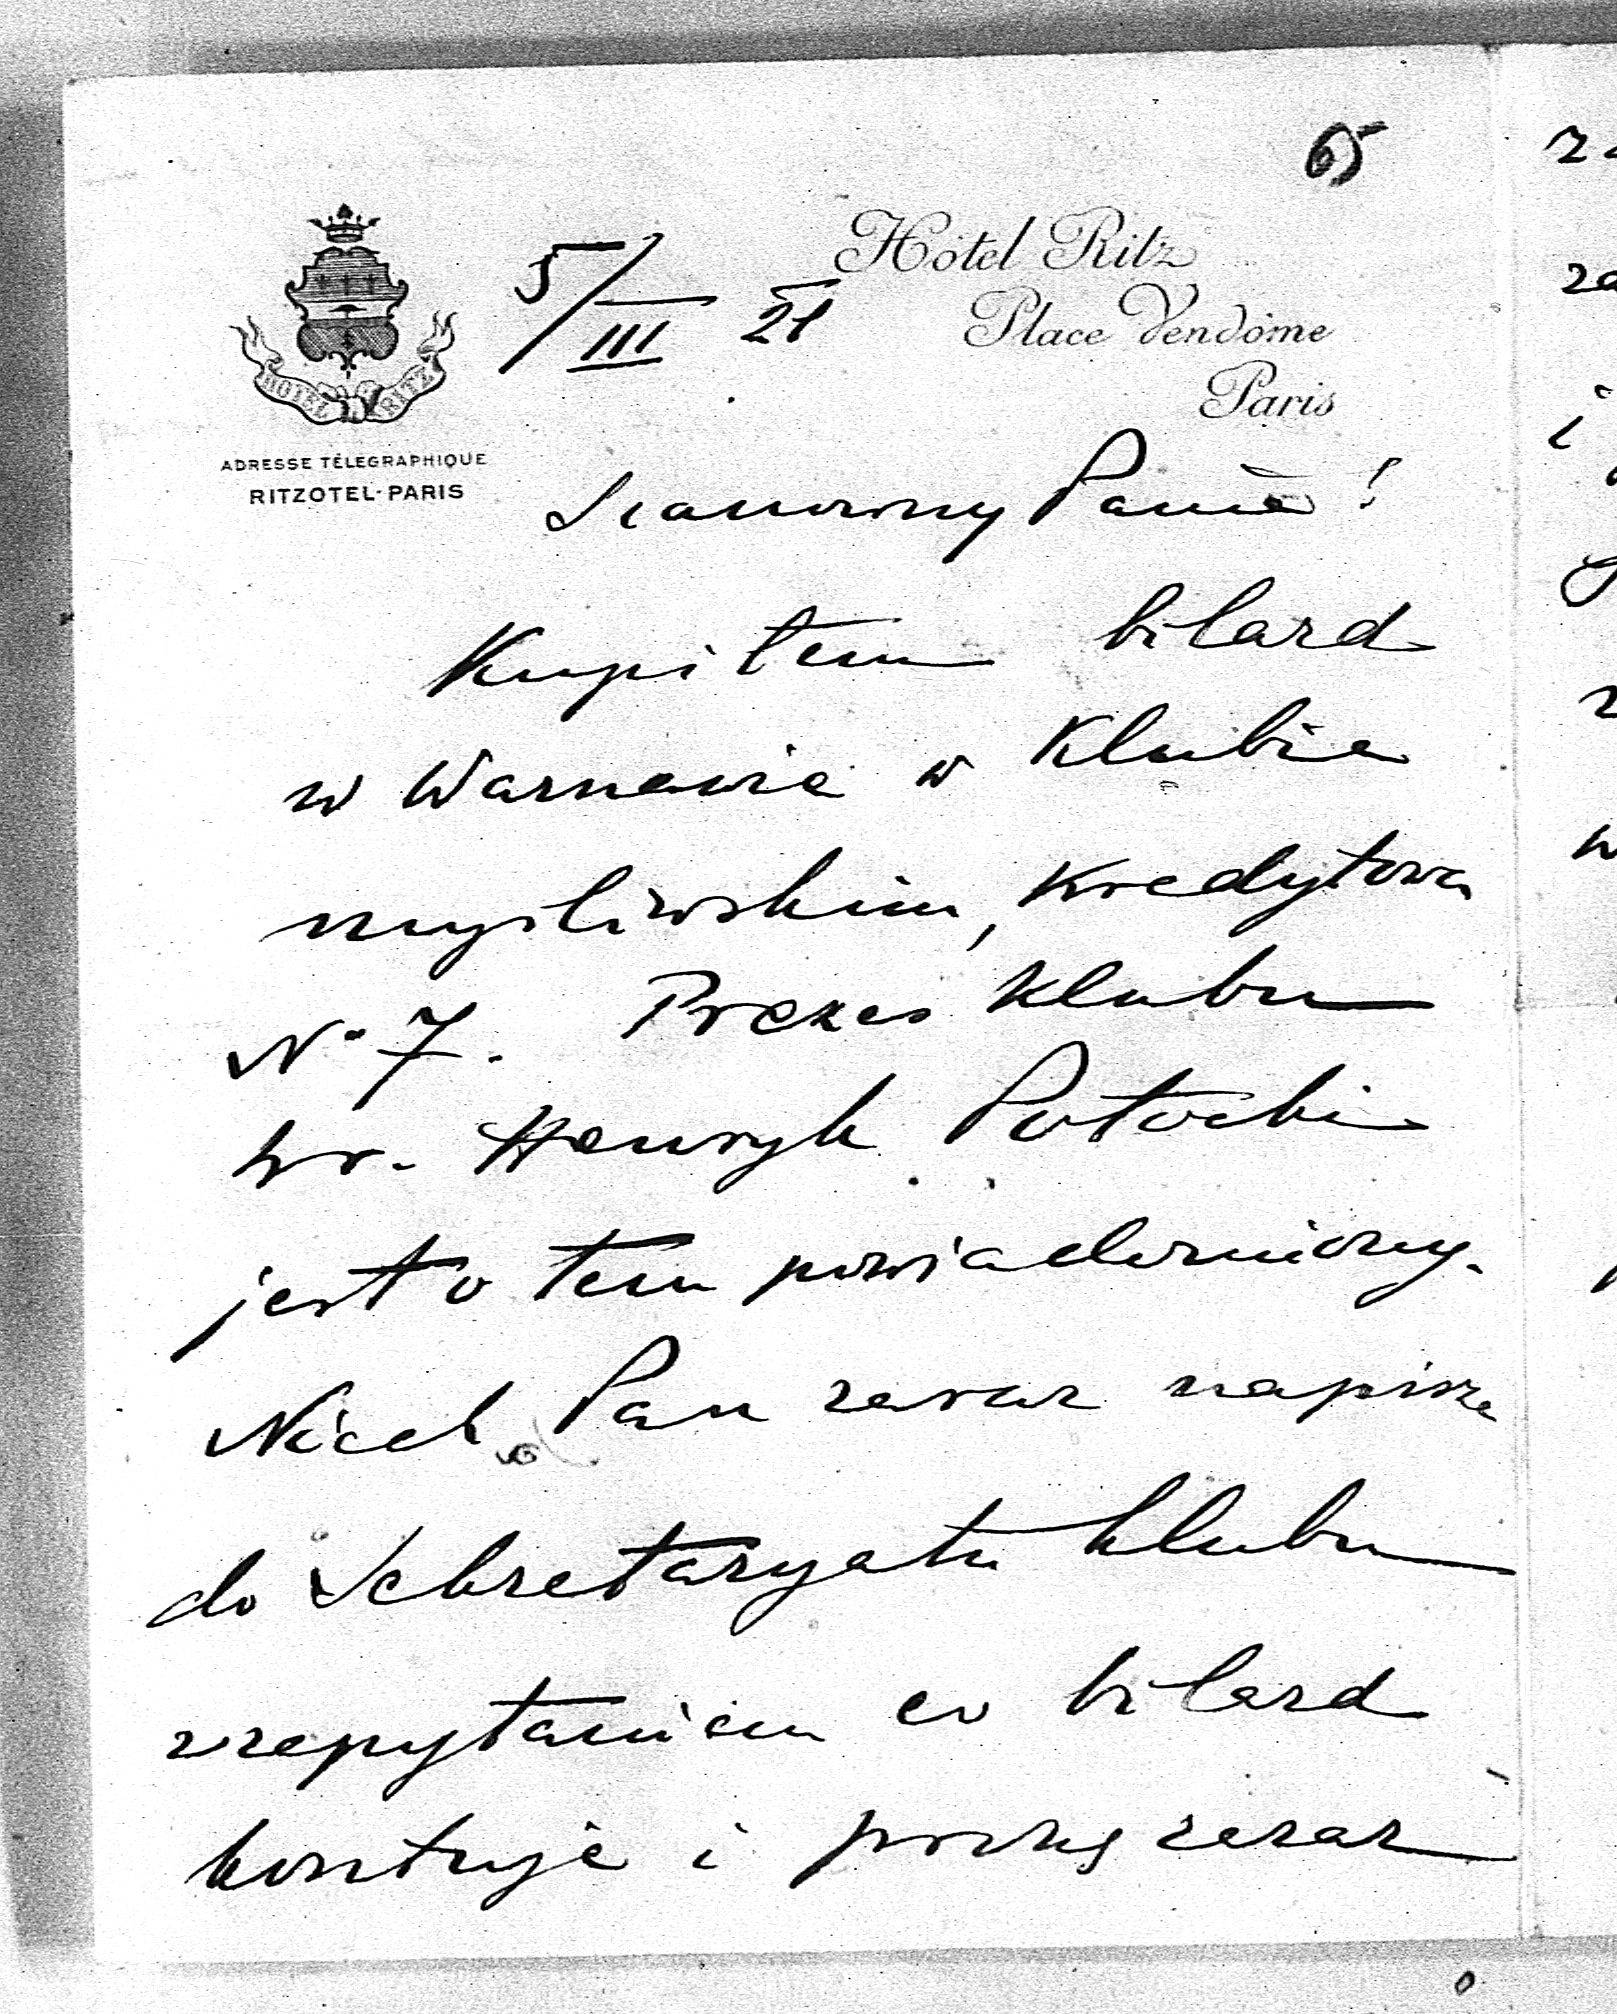 65
Hôtel Ritz
5/III 21
Place Vendôme
Paris
HOTEL RITZ
ADRESSE TÉLÉGRAPHIQUE
RITZOTEL-PARIS
Szanowny Panie!
Kupiłem bilard
w Warszawie w Klubie
myśliwskim, Kredytowa
No 7. Prezes Klubu
hr. Henryk Potocki
jest o tem powiadomiony.
Niech Pan zaraz napisze
do Sekretaryatu klubu
z zapytaniem co bilard
kosztuje i proszę zaraz